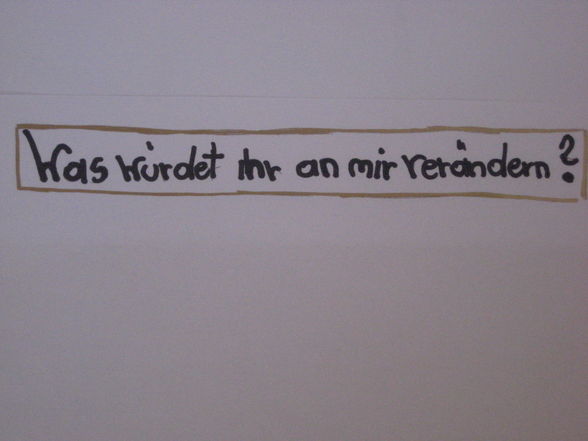 Was würdet ihr an mir verändern?